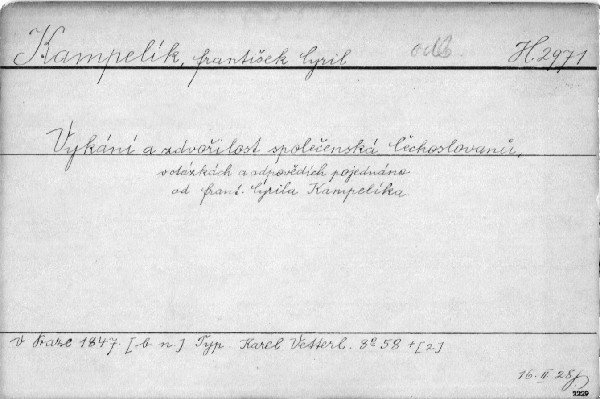 Kampelík, František Cyril odb. H. 2971
Vykání a zdvořilost společenská Čechoslovanů,
v otázkách a odpovědích pojednáno
od Frant. Cyrila Kampelíka
V Praze 1847. [b. n.] Typ. Karel Vetterl. 8º 58 + [2]
16. II. 28
3229